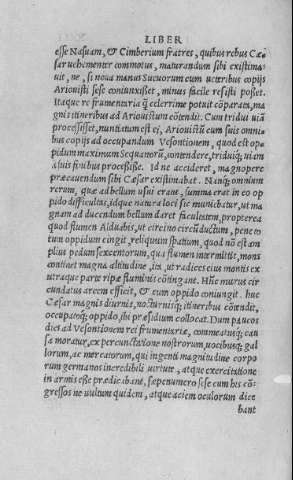 LIBER
esse Nasuam, & Cimberium fratres, quibus rebus Cæ
sar uehementer commotus, maturandum sibi existima
uit, ne, si noua manus Sueuorum cum ueteribus copijs
Ariouisti sese coniunxisset, minus facile resisti posset.
Itaque re frumentaria q̃ celerrime potuit cõparata, ma
gnis itineribus ad Ariouistum cõtendit. Cum tridui uiã
processisset, nuntiatum est ei, Ariouistũ cum suis omni
bus copijs ad occupandum Vesontionem, quod est op
pidum maximum Sequanorũ, contendere, triduiq; uiam
a suis finibus processisse. Id ne accideret, magnopere
præcauendum sibi Cæsar existimabat. Nanq; omnium
rerum, quæ ad bellum usui erant, summa erat in eo op
pido difficultas, idque natura loci sic muniebatur, ut ma
gnam ad ducendum bellum daret facultatem, propterea
quod flumen Alduabis, ut circino circũductum, pene to
tum oppidum cingit, reliquum spatium, quod nõ est am
plius pedum sexcentorum, qua flumen intermittit, mons
continet magna altitudine, ita, ut radices eius montis ex
utraque parte ripæ fluminis cõtingant. Hũc murus cir
cundatus arcem efficit, & cum oppido coniungit. huc
Cæsar magnis diurnis, nocturnisq; itineribus cõtendit,
occupatoq; oppido, ibi præsidium collocat. Dum paucos
dies ad Vesontionem rei frumentariæ, commeatusq; cau
sa moratur, ex percunctatione nostrorum, uocibusq; gal
lorum, ac mercatorum, qui ingenti magnitudine corpo
rum germanos incredibili uirtute, atque exercitatione
in armis esse prædicabant, sæpenumero sese cum his cõ
gressos ne uultum quidem, atque aciem oculorum dice
bant